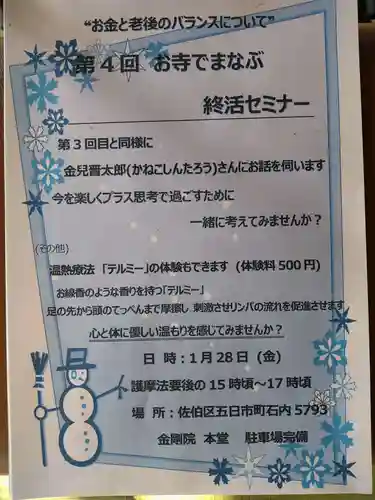 “お金と老後のバランスについて”
第4回　お寺でまなぶ
終活セミナー
第3回目と同様に
金兒晋太郎(かねこしんたろう)さんにお話を伺います
今を楽しくプラス思考で過ごすために
一緒に考えてみませんか？
(その他)
温熱療法　「テルミー」の体験もできます　(体験料500円)
お線香のような香りを持つ「テルミー」
足の先から頭のてっぺんまで摩擦し、刺激させリンパの流れを促進させます
心と体に優しい温もりを感じてみませんか？
日　時：1月28日（金）
護摩法要後の15時頃～17時頃
場　所：佐伯区五日市町石内5793
金剛院　本堂　駐車場完備